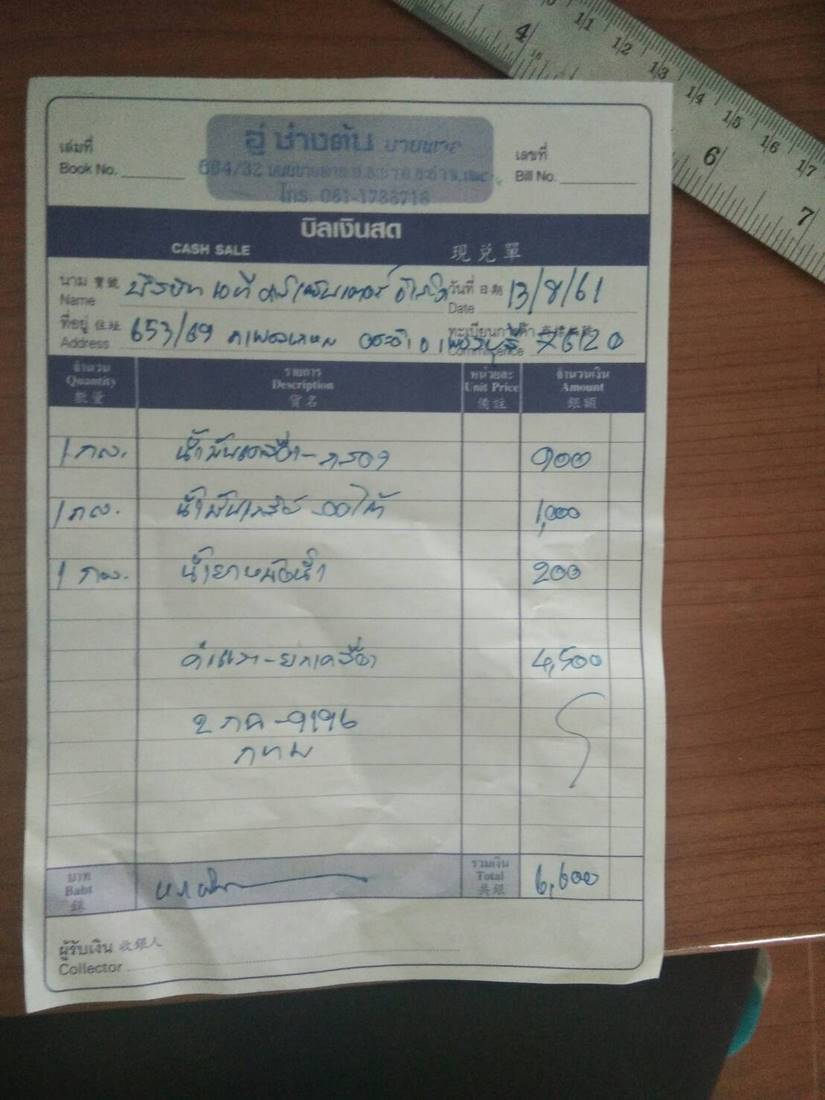 เล่มที่
Book No.
อู่ ช่างต้น บายพาส
เลขที่
Bill No.
664/32
โทร. 081-1788718
บิลเงินสด
CASH SALE 現兑單
นาม 寶號 บริษัท เอที เซ็นเตอร์ จำกัด
Name
วันที่ 日期 13/8/61
Date
ที่อยู่ 住址 653/69 76120
Address
จำนวน
Quantity
數量
รายการ
Description
貨名
หน่วยละ
Unit Price
備註
จำนวนเงิน
Amount
銀額
1 กล. น้ำมันเครื่อง-กรอง 900
1 กล. น้ำมันเกียร์ ออโต้ 1,000
1 กล. น้ำยาหม้อน้ำ 200
ค่าแรง-ยกเครื่อง 4,500
2 กค-9196
กทม
บาท
Baht
銀
รวมเงิน
Total
共銀
6,600
ผู้รับเงิน 收銀人
Collector